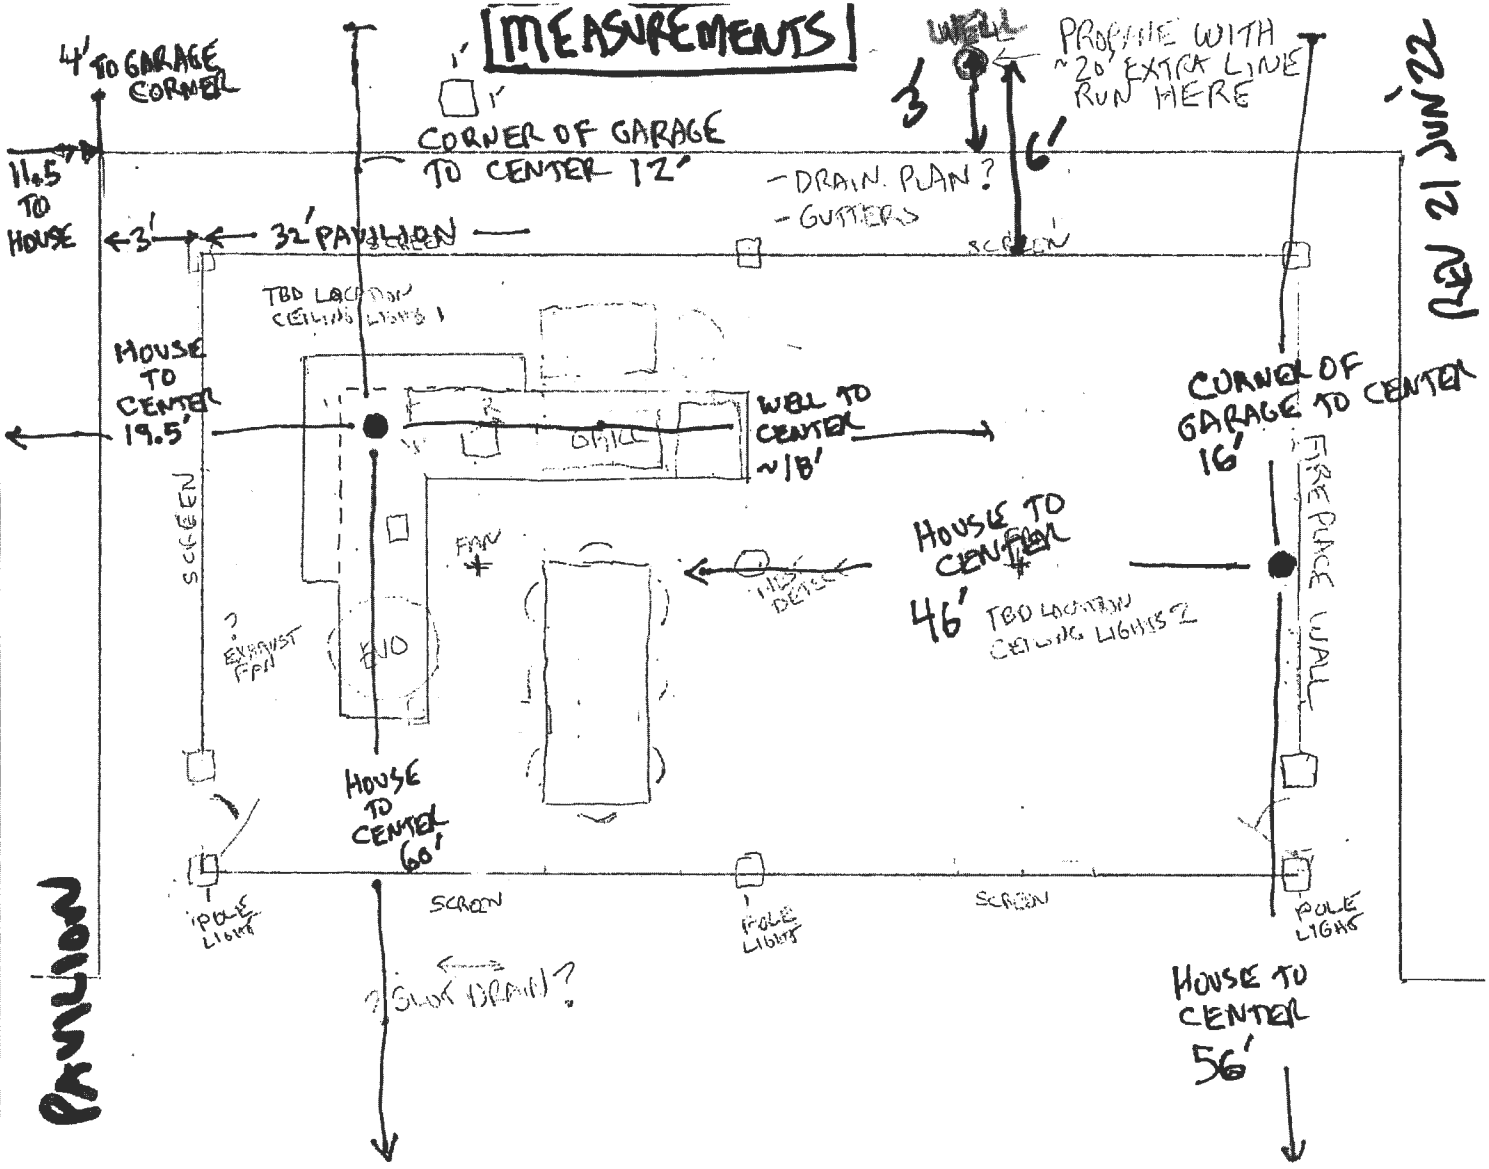 MEASUREMENTS
4' TO GARAGE
CORNER
1'
1'
WELL
PROPANE WITH
~20' EXTRA LINE
RUN HERE
3'
6'
REV 21 JUN '22
CORNER OF GARAGE
TO CENTER 12'
11.5'
TO
HOUSE
- DRAIN PLAN?
- GUTTERS
3'
32' PAVILION
SCREEN
SCREEN
TBD LOCATION
CEILING LIGHTS 1
HOUSE
TO
CENTER
19.5'
WELL TO
CENTER
~18'
GRILL
CORNER OF
GARAGE TO CENTER
16'
SCREEN
FIREPLACE WALL
FAN
HOUSE TO
CENTER
46'
FAN
TBD LOCATION
CEILING LIGHTS 2
?
EXHAUST
FAN
HOUSE
TO
CENTER
60'
SCREEN
SCREEN
POLE
LIGHT
POLE
LIGHT
POLE
LIGHT
? SLOT DRAIN?
HOUSE TO
CENTER
56'
PAVILION